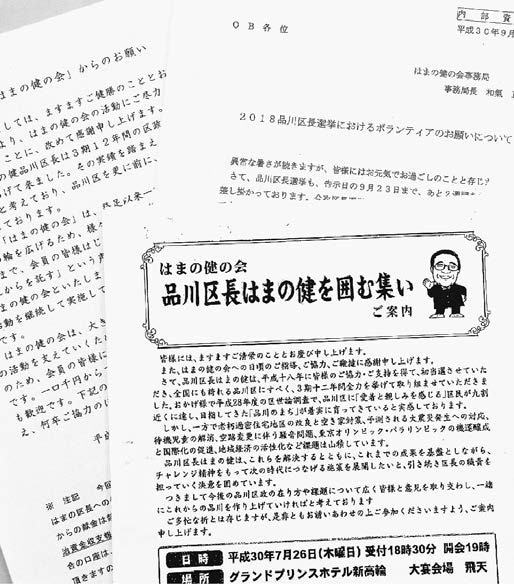 内部資
平成30年9月
OB各位
はまの健の会事務局
事務局長 和氣
2018品川区長選挙におけるボランティアのお願いについて
異常な暑さが続きますが、皆様にはお元気でお過ごしのことと存じ
さて、品川区長選挙も、告示日の9月23日まで、あと2週間
差し掛かっております。
はまの健の会」からのお願い
しては、ますますご健勝のこととお
より、はまの健の会の活動にご尽力
ことに、改めて感謝申し上げます。
の健品川区長は3期12年間の区政
げて来ました。その実績を踏まえ
と考えており、品川区を更に前に、
ております。
「はまの健の会」は、
の輪を広げるため、様
まで、会員の皆様はじ
からを託す」という声
まの健の会といたしま
活動を継続して実施して
です。
はまの健の会は、大き
の活動を支えていくため
のため、会員の皆様に
です。一口千円から
も歓迎です。下記の
え、何卒ご協力の
平成
※ 注記 今回
はまの区長への
からの献金は
治資金収支報
合の口座は、
頂きますの
はまの健の会
品川区長はまの健を囲む集い
ご案内
皆様には、ますますご清栄のこととお慶び申し上げます。
また、はまの健の会への日頃のご指導、ご協力、ご鞭撻に感謝申し上げます。
さて、品川区長はまの健は、平成十八年に皆様のご協力・ご支持を得て、初当選させていた
だき、全国にも誇れる品川区にすべく、3期十二年間全力を挙げて取り組ませていただきま
した。おかげ様で平成28年度の区世論調査で、品川区に「愛着と親しみを感じる」区民が九割
近くに達し、目指してきた「品川のまち」が着実に育ってきていると実感しております。
しかし、一方で老朽過密住宅地区の改良と空き家対策、予測される大震災発生への対応、
待機児童の解消、空路変更に伴う騒音問題、東京オリンピック・パラリンピックの機運醸成
と国際化の促進、地域経済の活性化など課題は山積しています。
品川区長はまの健は、これらを解決するとともに、これまでの成果を基盤としながら、
チャレンジ精神をもって次の時代につなげる施策を展開したいと、引き続き区長の職責を
担っていく決意を固めています。
つきまして今後の品川区政の在り方や課題について広く皆様と意見を取り交わし、一緒
にこれからの品川を作り上げていければと考えております
ご多忙な折とは存じますが、是非ともお誘いあわせの上ご参加くださいますよう、ご案内
申し上げます。
日時 平成30年7月26日(木曜日) 受付18時30分 開会19時
場所 グランドプリンスホテル新高輪 大宴会場 飛天